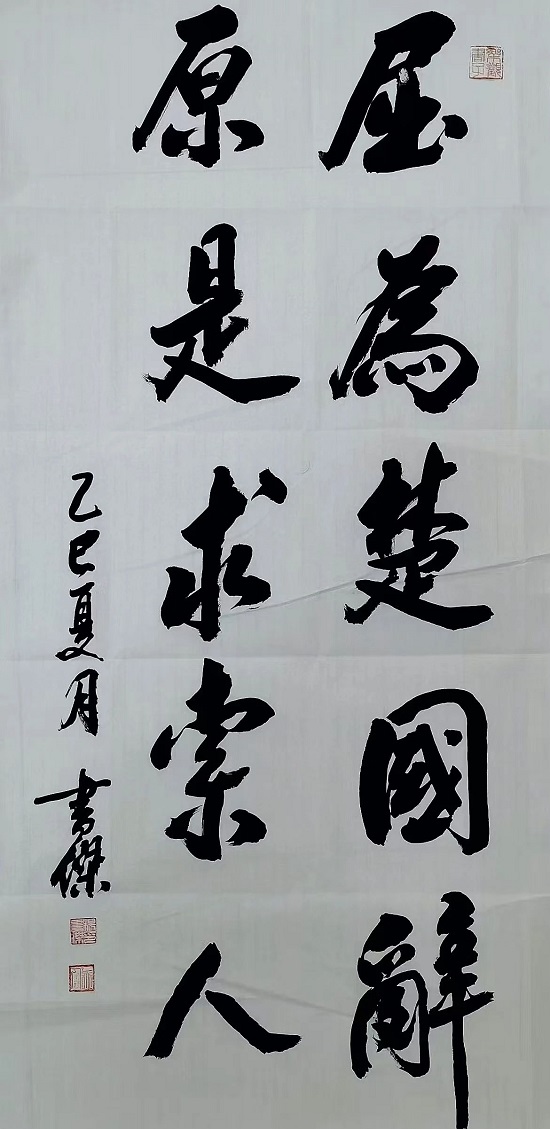 屈為楚國辭
原是求索人
乙巳夏月 書傑